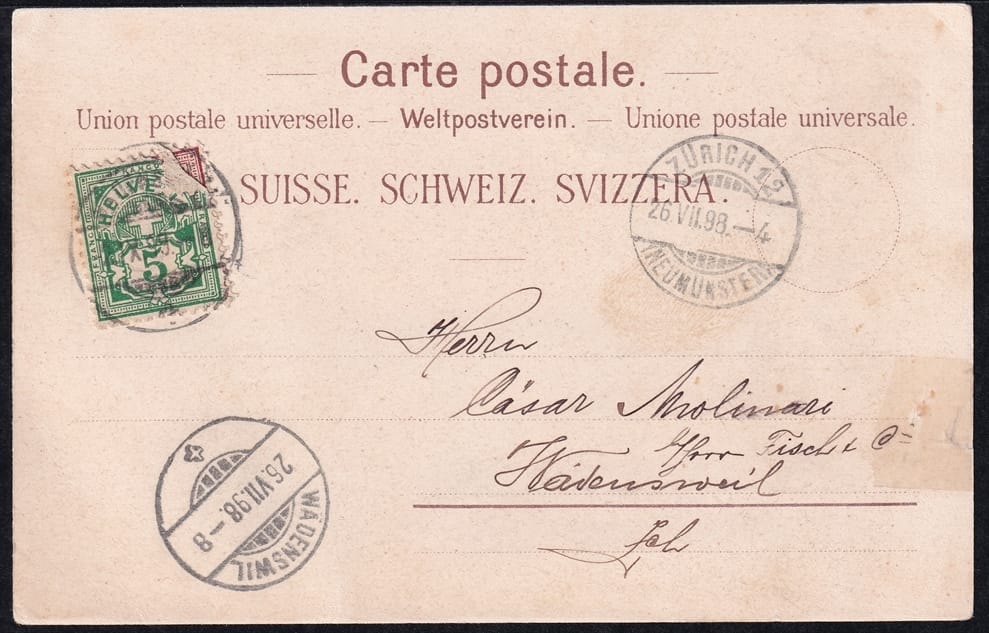 Carte postale.
Union postale universelle. — Weltpostverein. — Unione postale universale.
SUISSE. SCHWEIZ. SVIZZERA.
FRANCO
HELVE
5
ZÜRICH 12
26.VII.98.—4
(NEUMÜNSTER)
Herrn
Cäsar Molinari
Fisch & Cie
Wädensweil
26.VII.98.—8
WÄDENSWIL